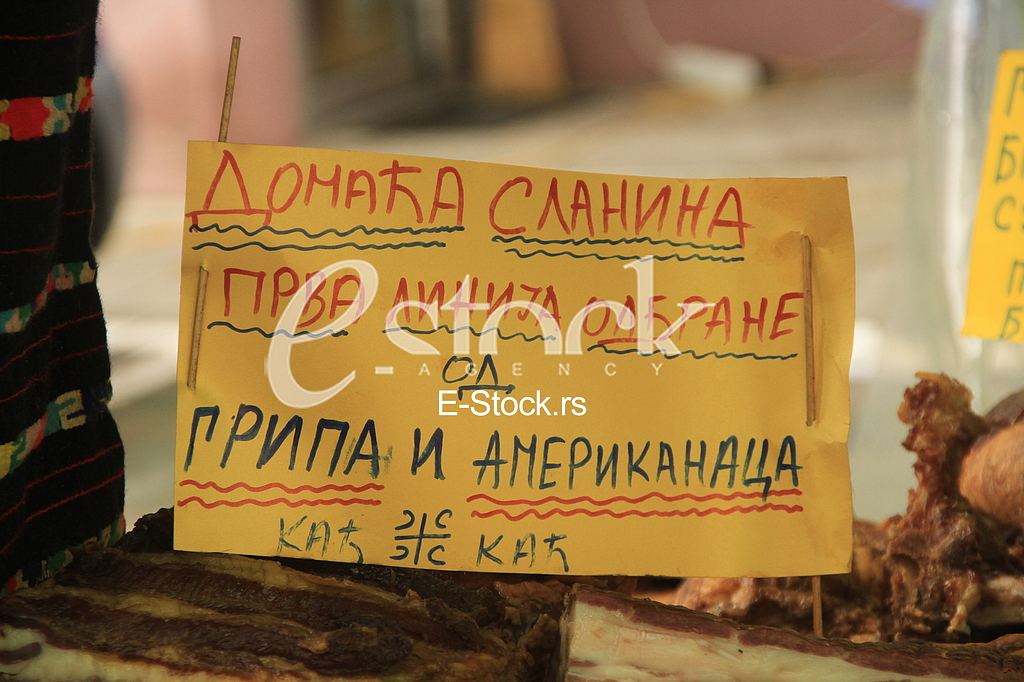 ДОМАЋА СЛАНИНА
ПРВА ЛИНИЈА ОДБРАНЕ
ОД
ГРИПА И АМЕРИКАНАЦА
КАЂ КАЂ
estock
- AGENCY
E-Stock.rs